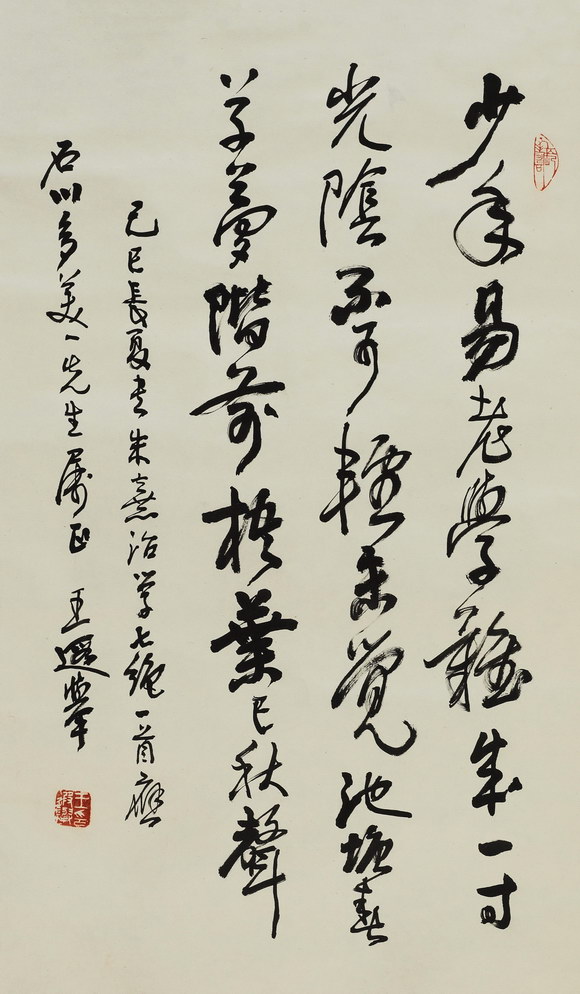 少年易老學難成一寸
光陰不可輕未覺池塘春
草夢階前梧葉已秋聲
己巳長夏書朱熹治學七絕一首應
石川多美一先生屬正 王遐舉